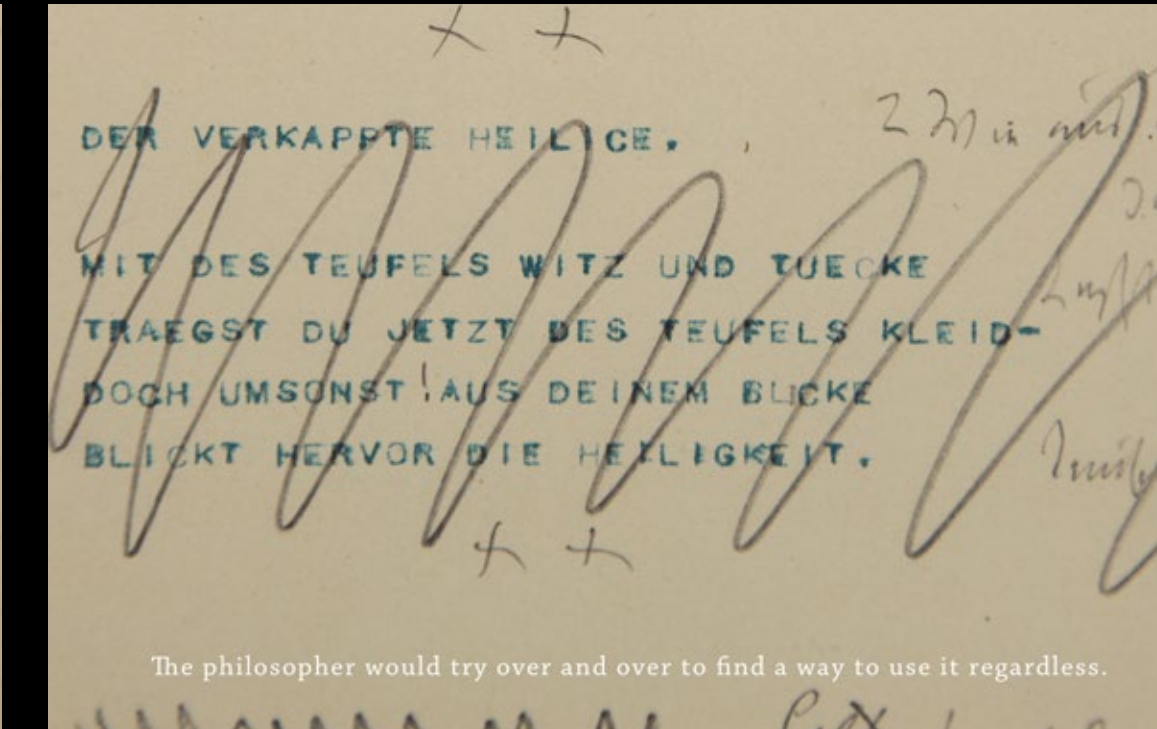 DER VERKAPPTE HEILIGE.
MIT DES TEUFELS WITZ UND TUECKE
TRAEGST DU JETZT DES TEUFELS KLEID-
DOCH UMSONST!AUS DEINEM BLICKE
BLICKT HERVOR DIE HEILIGKEIT.
The philosopher would try over and over to find a way to use it regardless.